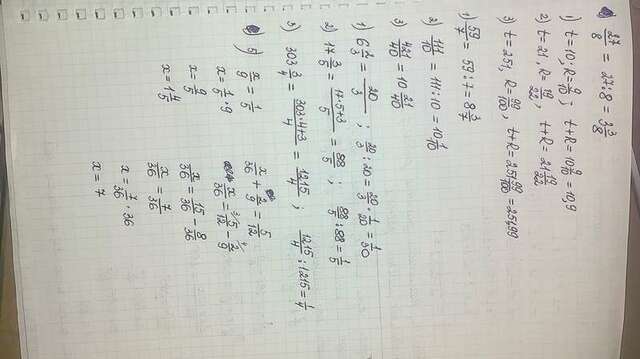 27/8 = 27:8 = 3 3/8
1) t=10; R=9/10; t+R=10 9/10=10,9
2) t=21, R=19/22, t+R=21 19/22
3) t=251, R=99/100, t+R=251 99/100=251,99
1) 59/7=59:7=8 3/7
2) 111/10=111:10=10 1/10
3) 421/40=10 21/40
1) 6 2/3=20/3; 20/3:20=20/3·1/20=1/30
2) 17 3/5=17·5+3/5=88/5; 88/5:88=1/5
3) 303 3/4=303·4+3/4=1215/4; 1215/4:1215=1/4
5) x/9=1/5
x=1/5·9
x=9/5
x=1 4/5
x/36+2/9=5/12
x/36=5/12-2/9
x/36=15/36-8/36
x/36=7/36
x=7/36·36
x=7